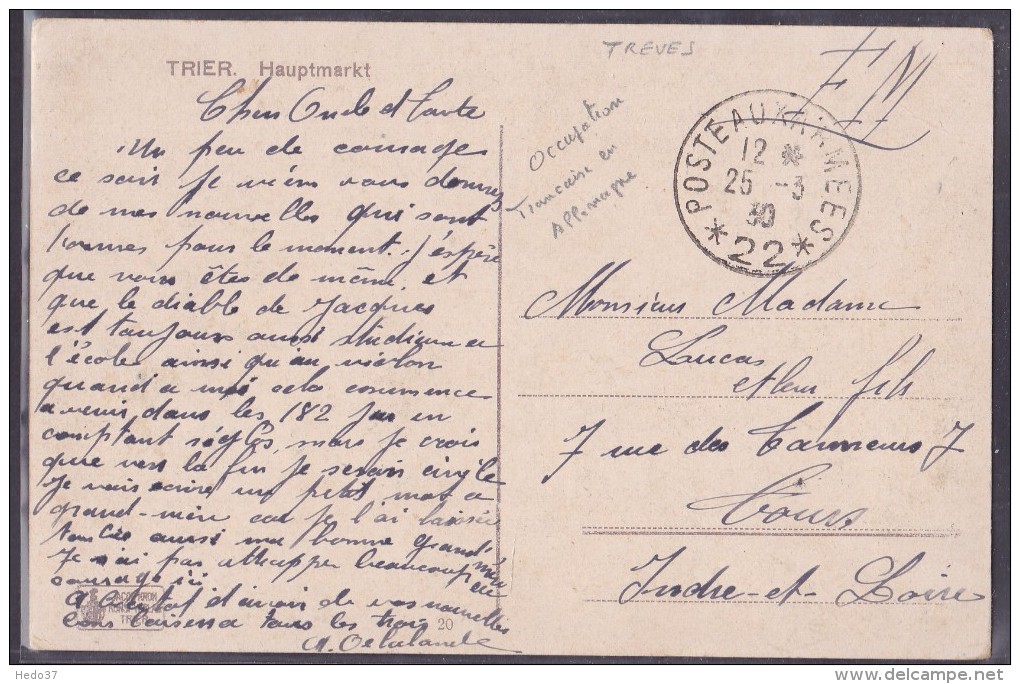 TREVES
FM
TRIER. Hauptmarkt
Occupation
Francaise en
Allemagne
POSTE AUX ARMEES
12 *
25 -3
30
* 22 *
Cher Oncle et Tante
Un peu de courage
ce soir je viens vous donner
de mes nouvelles qui sont
bonnes pour le moment. j'espère
que vous êtes de même, et
que le diable de Jacques
est toujours aussi studieux a
l'école ainsi qu'au violon
quand a moi cela commence
a venir, dans les 182 jus en
comptant réglés, mais je crois
que vers la fin je serais
Je vais écrire un petit mot a
grand-mère car je l'ai laissée
aussi ma bonne grand'
mère
Je n'ai pas attrapper beaucoup
courage ici
d'avoir de vos nouvelles
tous les trois
A. Delalande
20
Monsieur Madame
Lucas
et leur fils
7 rue des Tanneurs 7
Tours
Indre-et-Loire
TRIER
Hedo37
www.delcampe.net